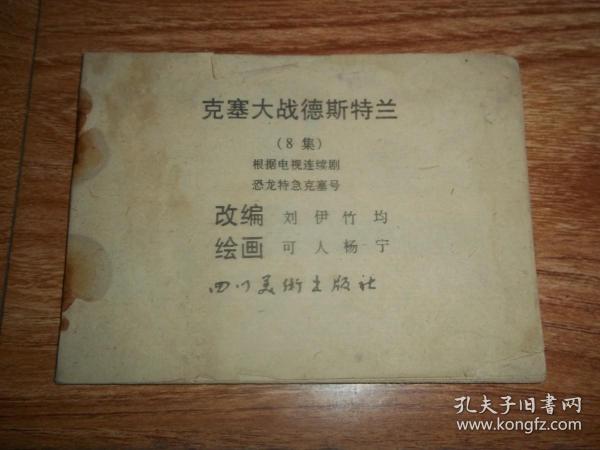 克塞大战德斯特兰
（8 集）
根据电视连续剧
恐龙特急克塞号
改编 刘 伊 竹 均
绘画 可 人 杨 宁
四川美术出版社
孔夫子旧书网
www.kongfz.com